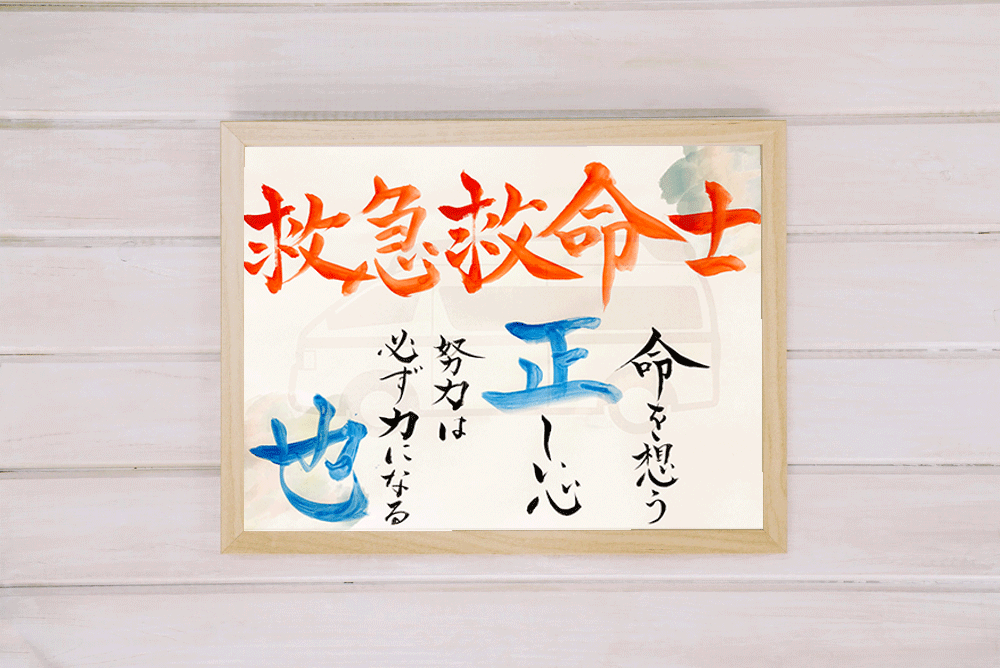 救急救命士
命を想う
正しい心
努力は
必ず力になる
也